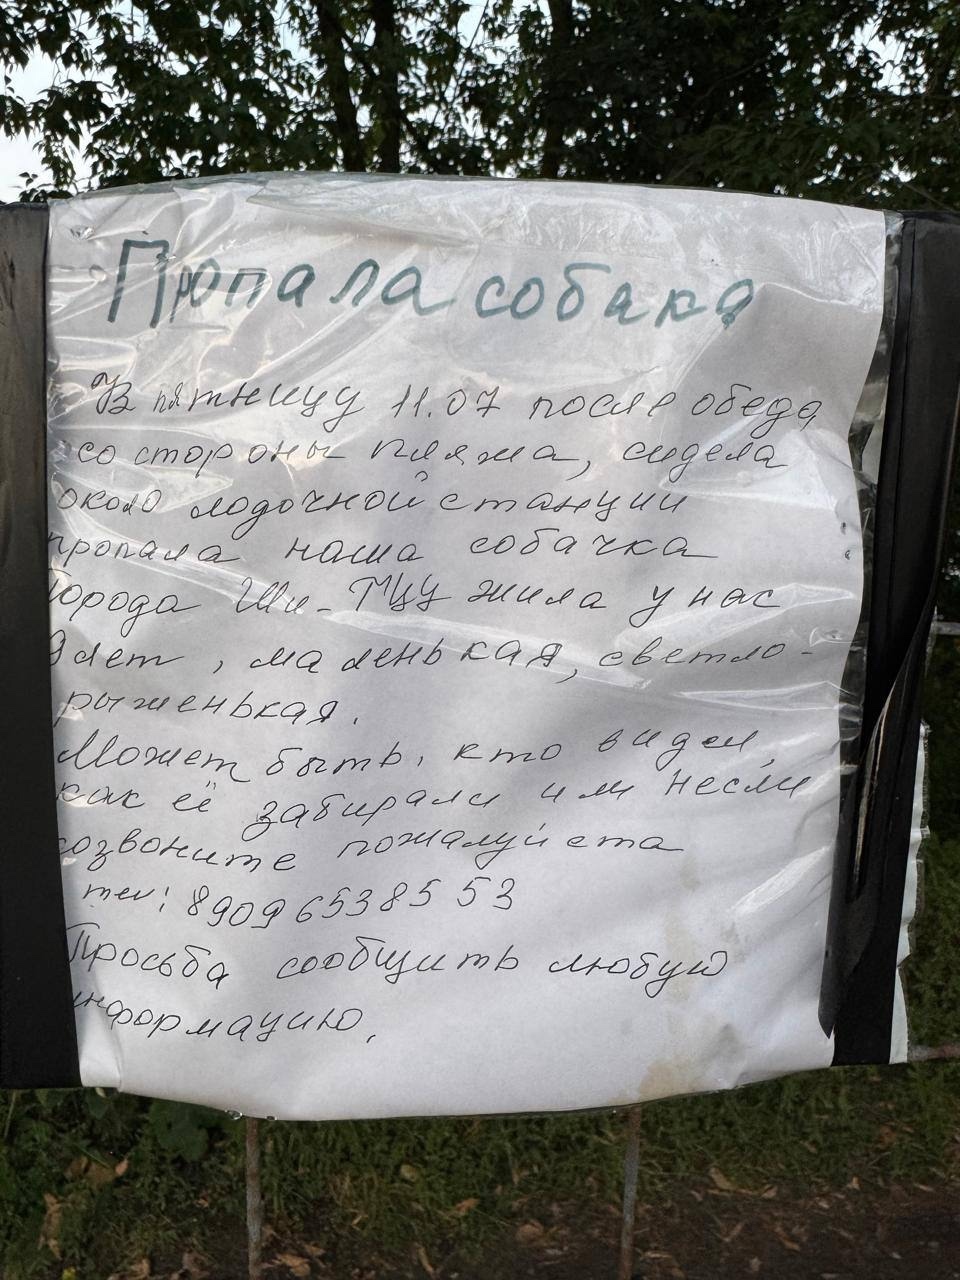 Пропала собака
В пятницу 11.07 после обеда,
со стороны пляжа, сидела
около лодочной станции
пропала наша собачка
порода Ши-Тцу жила у нас
9 лет, маленькая, светло-
рыженькая.
Может быть, кто видел,
как её забирали или несли
позвоните пожалуйста
тел: 8909 65385 53
Просьба сообщить любую
информацию.